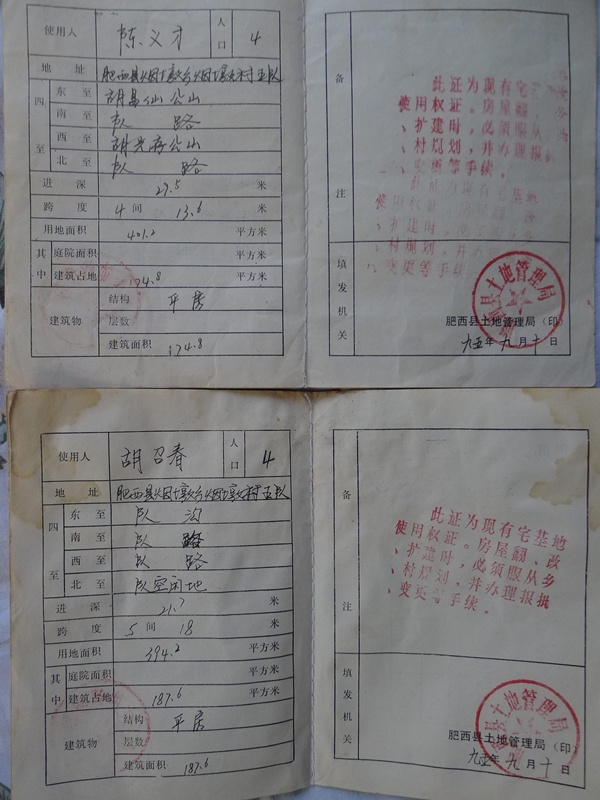 使用人 陈义才 人口 4
地址 肥西县烟墩乡烟墩村五队
四至
东至 胡昌仙公山
南至 队 路
西至 胡光存公山
北至 队 路
进深 29.5 米
跨度 4 间 13.6 米
用地面积 401.2 平方米
其中
庭院面积 平方米
建筑占地 174.8 平方米
建筑物
结构 平房
层数
建筑面积 174.8
备注
此证为现有宅
使用权证。房屋翻、
、扩建时,必须服从
、村规划,并办理报
、变更等手续。
此证为现有宅基地
使用权证。房屋翻、改
、扩建时,必须服从乡
、村规划,并办
、变更等手续
填发机关
肥西县土地管理局
肥西县土地管理局(印)
九五年九月十日
使用人 胡召春 人口 4
地址 肥西县烟墩乡烟墩村五队
四至
东至 队 沟
南至 队 路
西至 队 路
北至 队空闲地
进深 21.7 米
跨度 5 间 18 米
用地面积 394.2 平方米
其中
庭院面积 平方米
建筑占地 187.6 平方米
建筑物
结构 平房
层数
建筑面积 187.6
备注
此证为现有宅基地
使用权证。房屋翻、改
、扩建时,必须服从乡
、村规划,并办理报批
、变更等手续。
填发机关
肥西县土地管理局
肥西县土地管理局(印
九五年九月十日